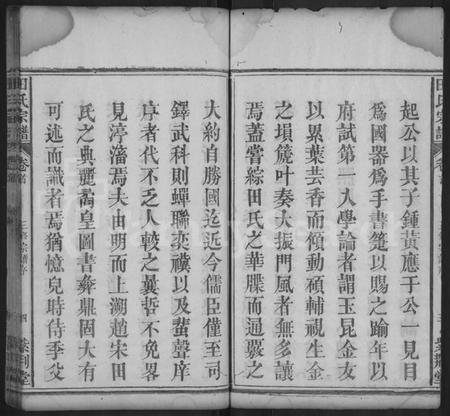 起公以其子鍾黃應于公一見目
為國器爲手書箋以賜之踰年以
府試第一入學論者謂玉昆金友
以累葉芸香而傾動碩輔視生金
之埙篪叶奏大振門風者無多讓
焉蓋嘗綜田氏之華牒而通覈之
大約自勝國迄近今儒臣僅至司
鐸武科則蟬聯奕禩以及蜚聲庠
序者代不乏人較之曩哲不免畧
見渟瀋焉夫由明而上溯趙宋田
氏之典麗喬皇圖書彝鼎固大有
可述而識者焉猶憶兒時侍季父
田氏宗譜
卷首
四
紫荊堂